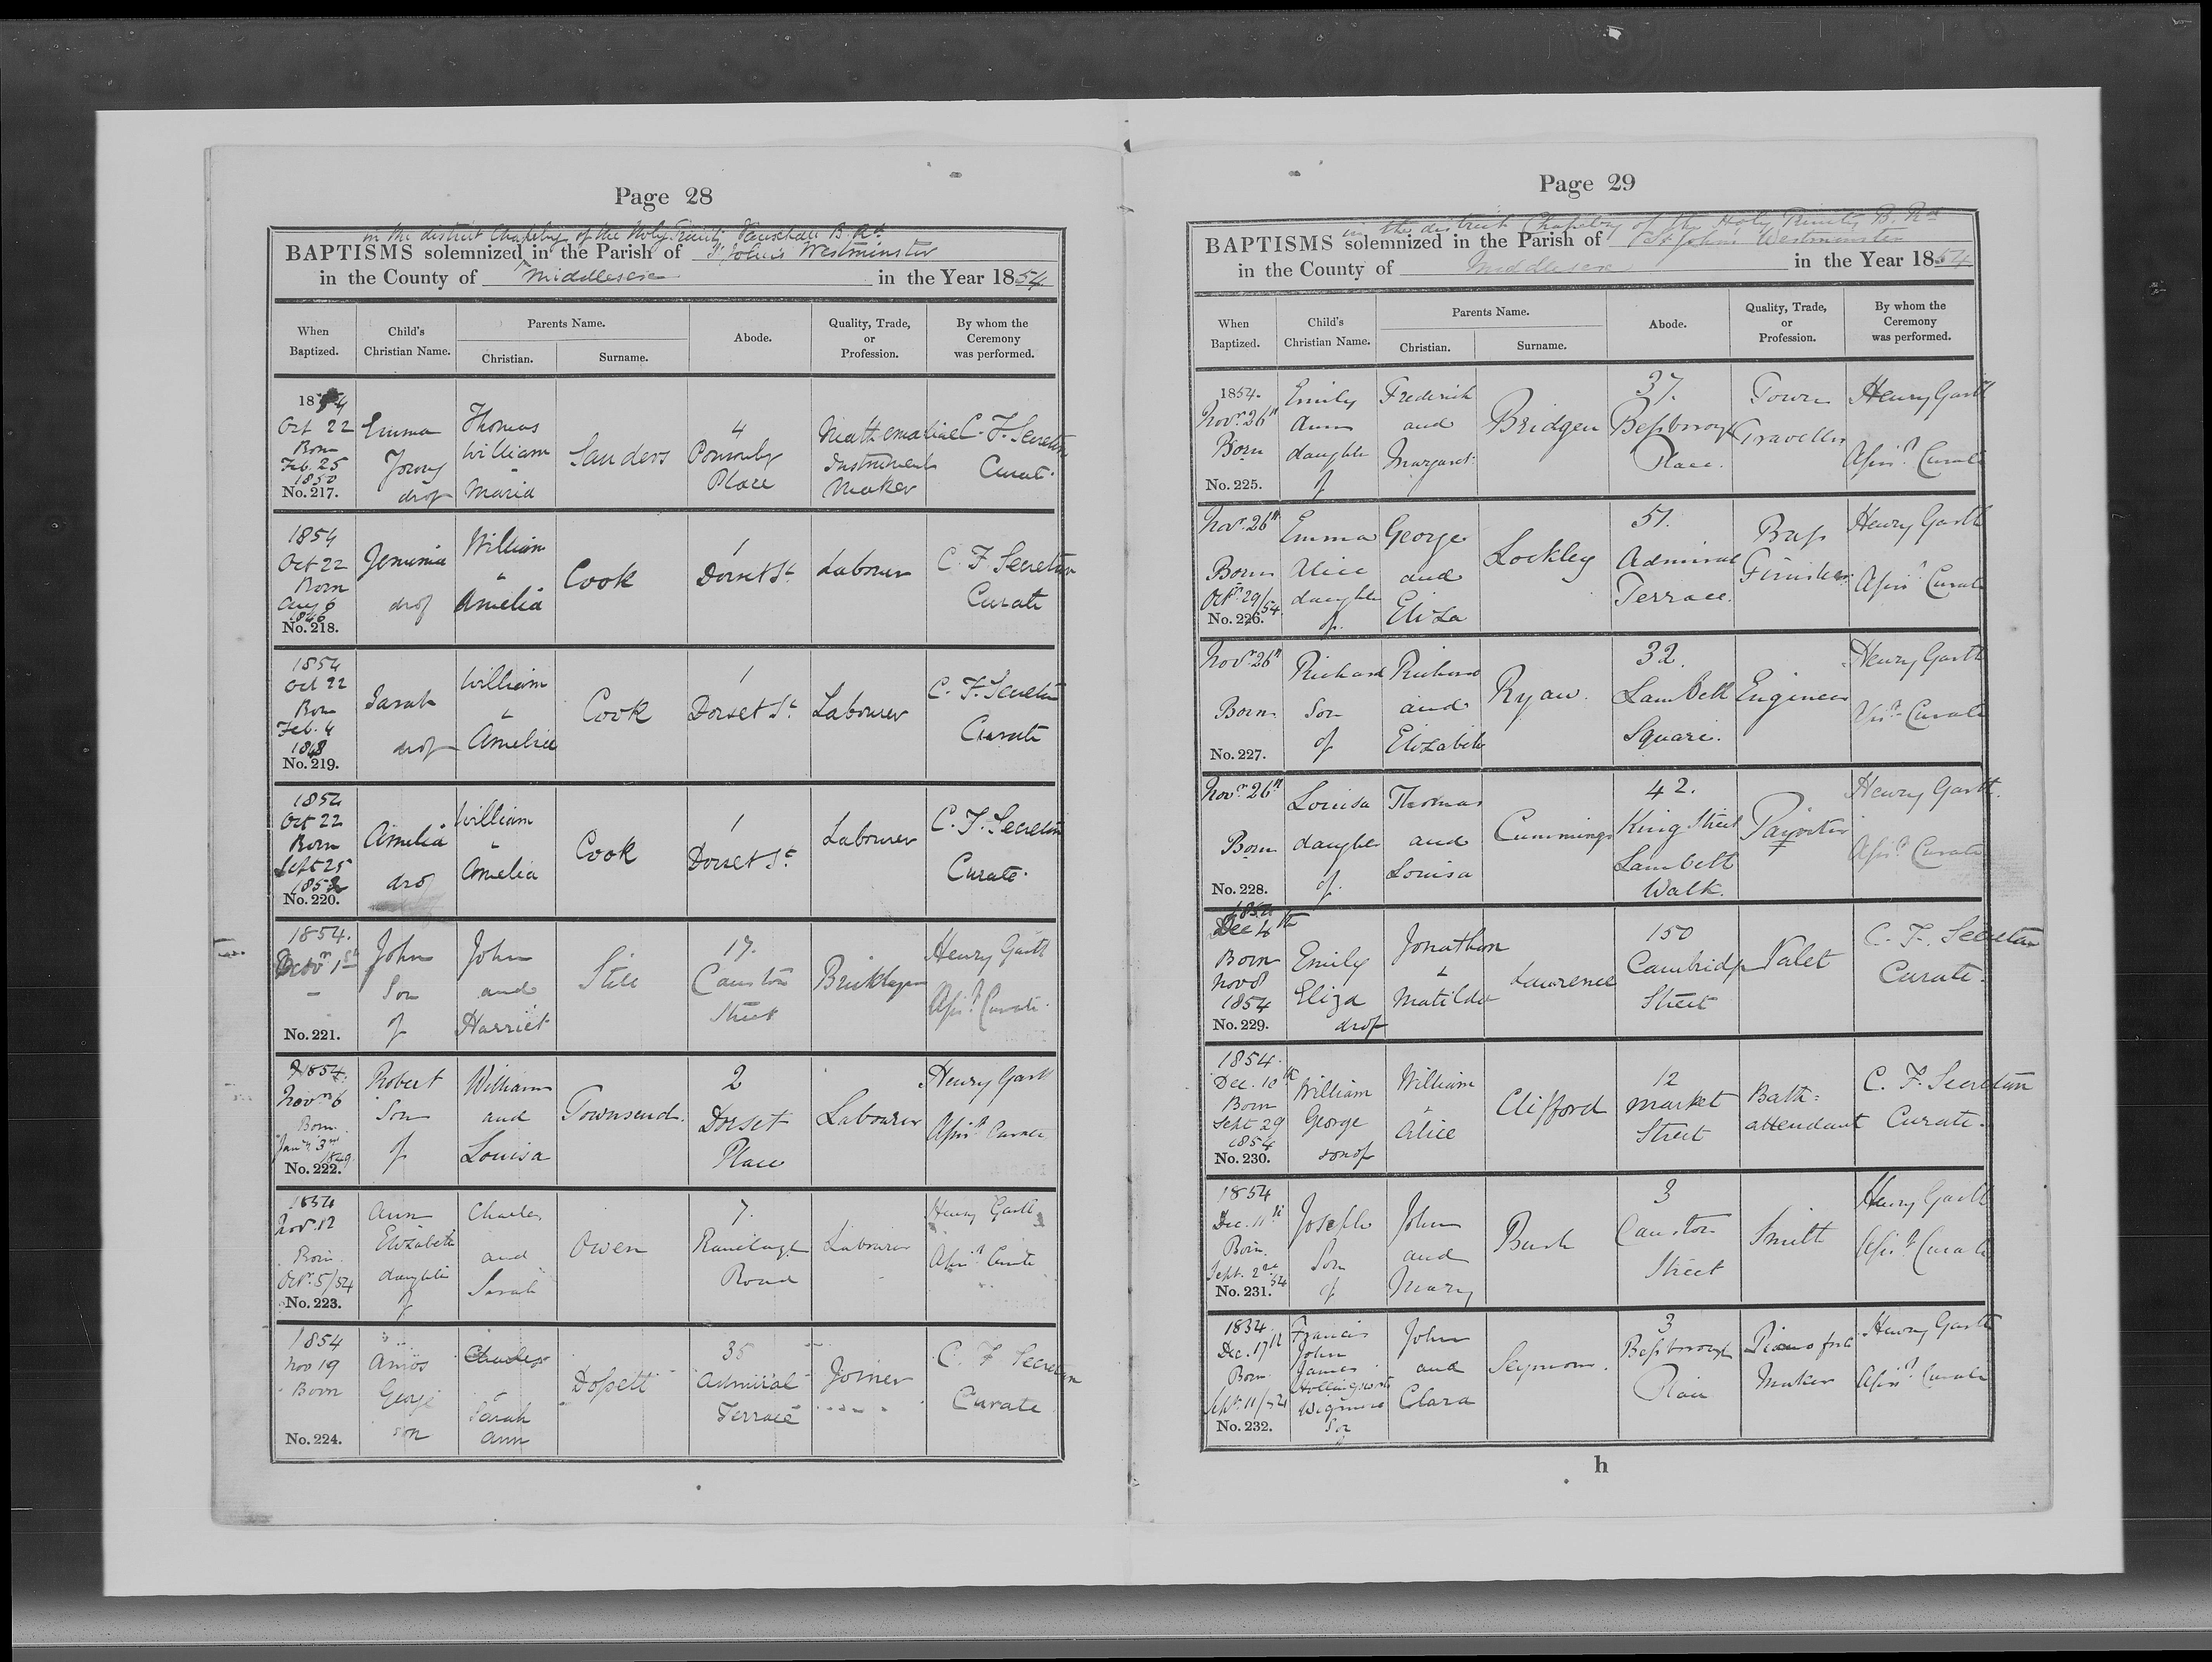 Page 28
in the district Chapelry of the Holy Trinity Vauxhall B. Rd.
BAPTISMS solemnized in the Parish of St John's Westminster
in the County of Middlesex in the Year 1854.
When Baptized. Child's Christian Name. Parents Name. Christian. Surname. Abode. Quality, Trade, or Profession. By whom the Ceremony was performed.
1854 Oct 22 Born Feb. 25 1850 No. 217. Emma dr of Thomas William Maria Sanders 4 Ponsonby Place Mathematical Instrument Maker C. F. Secretan Curate.
1854 Oct 22 Born Aug 6 1846 No. 218. Jemima dr of William & Amelia Cook 1 Dorset St. Labourer C. F. Secretan Curate
1854 Oct 22 Born Feb. 4 1848 No. 219. Sarah dr of William & Amelia Cook 1 Dorset St. Labourer C. F. Secretan Curate
1854 Oct 22 Born Sept 25 1852 No. 220. Amelia dr of William & Amelia Cook 1 Dorset St. Labourer C. F. Secretan Curate.
1854. Novr 1st No. 221. John Son of John and Harriet 17. Causton Street Bricklayer Henry Garth Assist Curate.
1854. Novr 6 Born Jany 3rd 1849 No. 222. Robert Son of William and Louisa Townsend. 2 Dorset Place Labourer Henry Garth Assist Curate
1854 Nov. 12 Born Octr. 5/54 No. 223. Ann Elizabeth daughter of Charles and Sarah Owen 7. Ranelagh Road Labourer Henry Garth Assist Curate
1854 Nov 19 Born No. 224. Amos George son Charles & Sarah Ann Dossett 35 Admiral Terrace Joiner C. F. Secretan Curate
Page 29
in the district Chapelry of the Holy Trinity B. Rd
BAPTISMS solemnized in the Parish of St John's Westminster
in the County of Middlesex in the Year 1854
When Baptized. Child's Christian Name. Parents Name. Christian. Surname. Abode. Quality, Trade, or Profession. By whom the Ceremony was performed.
1854. Novr. 26th Born No. 225. Emily Ann daughter of Frederick and Margaret Bridgen 37. Bessborough Place. Town Traveller Henry Garth Assist Curate
Novr. 26th Born Octr. 29/54 No. 226. Emma Alice daughter of George and Eliza Lockley 51. Admiral Terrace. Brass Finisher Henry Garth Assist Curate
Novr. 26th Born No. 227. Richard Son of Richard and Elizabeth Ryan. 32. Lambeth Square. Engineer Henry Garth Assist Curate
Novr. 26th Born No. 228. Louisa daughter of Thomas and Louisa Cummings 42. King Street Lambeth Walk. Painter Henry Garth. Assist Curate
1854 Dec 4th Born Nov 8 1854 No. 229. Emily Eliza dr of Jonathan & Matilda Laurence 150 Cambridge Street Valet C. F. Secretan Curate.
1854. Dec. 10th Born Sept 29 1854 No. 230. William George son of William & Alice Clifford 12 Market Street Bath= attendant C. F. Secretan Curate.
1854 Dec. 11th Born. Sept. 2nd 54 No. 231. Joseph Son of John and Mary Bush 3 Causton Street Smith Henry Garth Assist Curate
1854. Dec. 17th Born Septr. 11/54 No. 232. Francis John James Hollingworth Son John and Clara Seymour. 3 Bessborough Place Pianoforte Maker Henry Garth Assist Curate
h